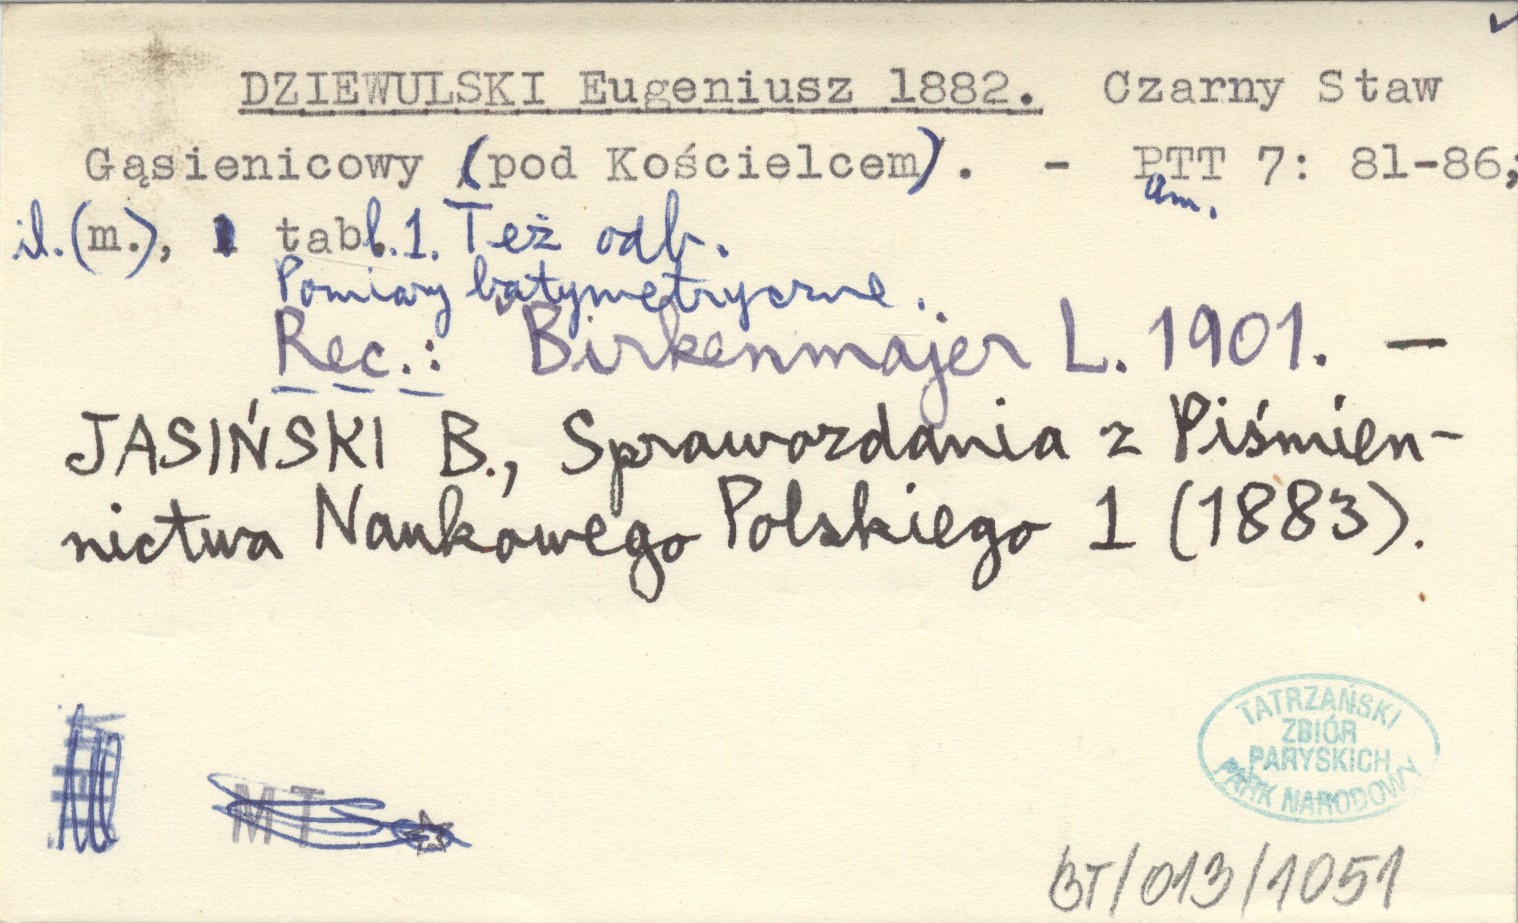 DZIEWULSKI Eugeniusz 1882. Czarny Staw
Gąsienicowy (pod Kościelcem). - PTT 7: 81-86;
am.
il. (m.), 1 tabl. 1. Też odb.
Pomiary batymetryczne.
Rec.: Birkenmajer L. 1901. —
JASIŃSKI B., Sprawozdania z Piśmien-
nictwa Naukowego Polskiego 1 (1883).
MT
TATRZAŃSKI
ZBIÓR
PARYSKICH
PARK NARODOWY
BT/013/1051